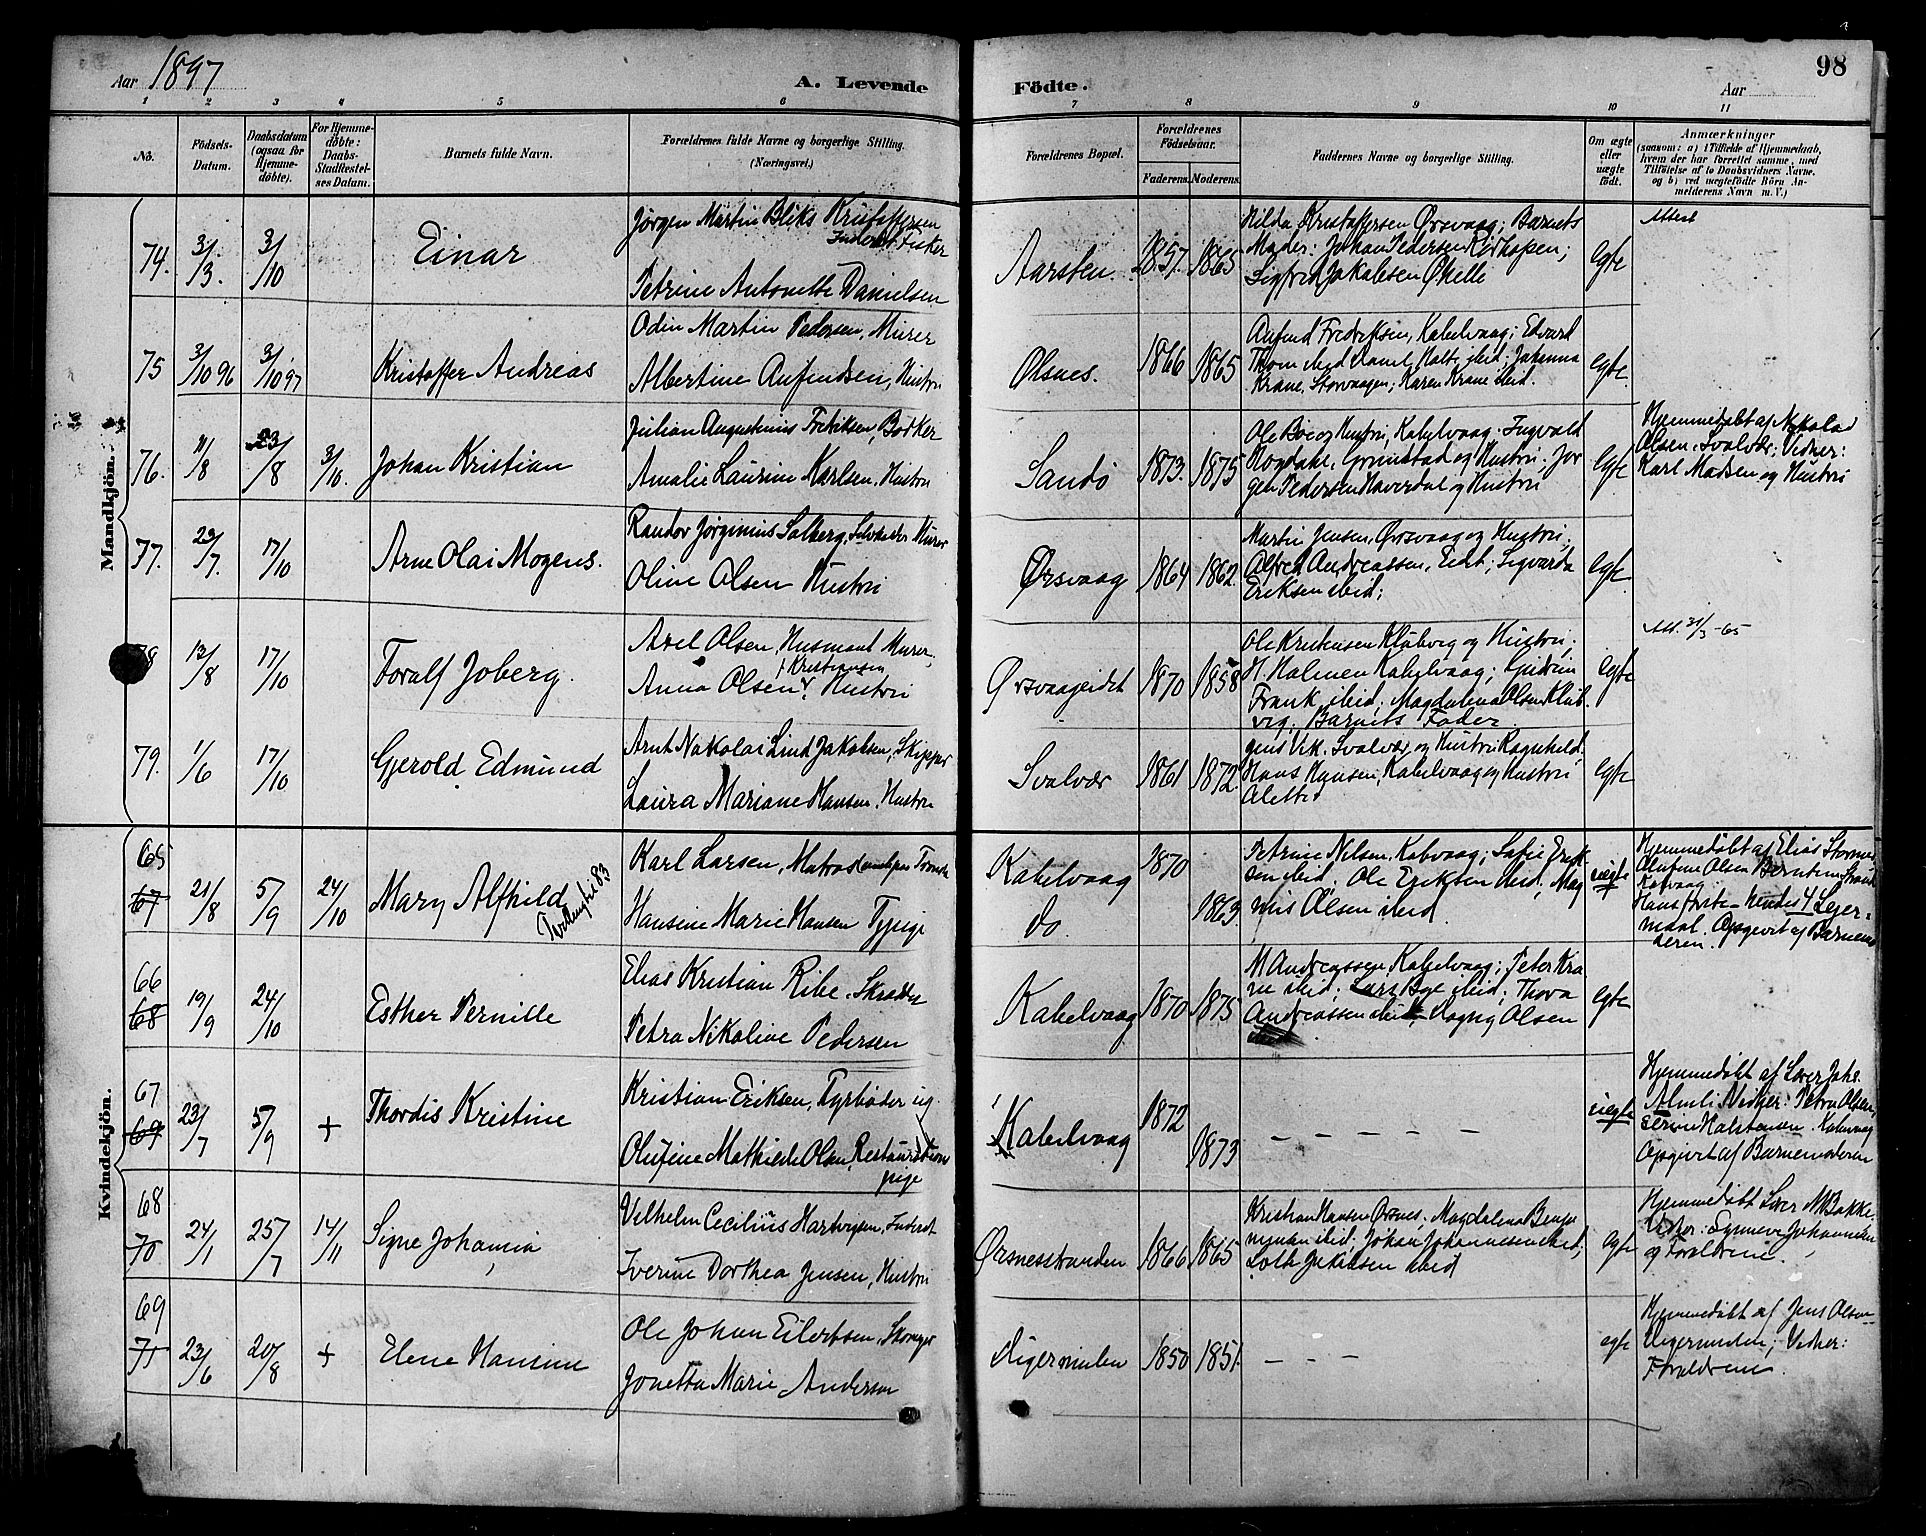 Aar 1897
A. Levende
Födte.
Aar
98
1 2 3 4 5 6 7 8 9 10 11
No.
Födsels-
Datum.
Daabsdatum
(ogsaa for
Hjemme-
döbte).
For Hjemme-
döbte:
Daabs-
Stadfæstel-
ses Datum.
Barnets fulde Navn.
Forældrenes fulde Navne og borgerlige Stilling.
(Næringsvei.)
Forældrenes Bopæl.
Forældrenes
Födselsaar.
Faderens. Moderens.
Faddernes Navne og borgerlige Stilling.
Om ægte
eller
uægte
födt.
Anmærkninger
(saasom: a) i Tilfælde af Hjemmedaab,
hvem der har forrettet samme, med
Tilföielse af to Daabsvidners Navne.
og b) ved uægtefödte Börn An-
melderens Navn m. V.)
Mandkjön.
74. 3/3. 3/10 Einar
Jørgen Martin Bliks Kristoffersen
Inderst Fisker
Petrine Antonette Danielsen
Aarsten 1857. 1865
Hilda Kristoffersen Ørsvaag; Barnets
Moder: Johan Pedersen Kirkhopen;
Sigfred Jakobsen Øhelle
egte
Attest
75 3/10 96 3/10 97 Kristoffer Andreas
Odin Martin Pedersen, Murer
Albertine Aufindsen, Hustru
Ølsnes. 1866 1865
Aufind Fredriksen, Kabelvaag; Edvard
Thom ibid Daniel Holte ibid; Johanna
Krane, Storvaagen; Karen Krane ibid.
egte.
76. 11/8 23/8 3/10. Johan Kristian
Julian Augustinus Fredriksen, Bødker
Amalie Laurine Karlsen, Hustru
Sandö 1873. 1875
Ole Boe og Hustru, Kabelvaag. Ingvald
Hogdahl, Grimstad og Hustru. Jør
gen Pedersen Haverdal og Hustru
egte
Hjemmedøbt af Nikolai
Olsen, Svalvær; Vidner:
Karl Madsen og Hustru
77. 29/7. 17/10 Arne Olai Mogens.
Randor Jørginius Solberg, Selveier Murer
Oline Olsen Hustru
Ørsvaag 1864 1862.
Martin Jensen, Ørsvaag og Hustru;
Alfred Andreassen, Eidet; Sigvarda
Eriksen ibid;
egte.
78 13/8 17/10 Toralf Joberg.
Axel Olsen, Husmand Murer,
f Kristiansen
Anna Olsen Hustru
Ørsvaageidet 1870 1858
Ole Kristensen Kløbvig og Hustru;
H. Halmen Kabelvaag; Gudrun
Frank ibid; Magdalena Olsen Kløb
vig. Barnets Fader.
egte
Att. 31/3-65
79. 1/6 17/10 Gjerold Edmund
Arnt Nikolai Lind Jakobsen, Skipper
Laura Mariane Hansen, Hustru
Svalvær 1861 1872.
Jens Vik, Svalvær og Hustru Ragnhild.
Hans Hansen, Kabelvaag og Hustru
Alette
egte
Kvindekjön.
65
67 21/8 5/9 24/10 Mary Alfhild
Karl Larsen, Matros
Hansine Marie Hansen Typige
Kabelvaag 1870
do. 1863
Petrine Nilsen, Kabvaag; Sofie Erik
sen ibid, Ole Eriksen ibid, Mag
nus Olsen ibid.
uegte
Hjemmedøbt af Elias Stornes
Olufine Olsen Berntine Strand
Kabvaag
Hans første - hendes 4 Leier-
maal. Opgivet af Barnemo
deren.
66
68 19/9 24/10 Esther Pernille
Elias Kristian Ribe, Skrædder
Petra Nikoline Pedersen
Kabelvaag 1870 1875
M Andreassen, Kabelvaag; Peter Kra
ne ibid; Lars Boge ibid; Thora
Andreassen ibid; Dagny Olsen
egte
67
69 23/7 5/9 + Thordis Kristine
Kristian Eriksen, Fyrbøder ug.
Olufine Mathilde Olsen, Restaurations
pige
Kabelvaag 1872
1873
— — — — —
uegte
Hjemmedøbt af Lærer Joh.
Almli Vidner: Petra Olsen,
Serine Halstensen, Kabelvaag
Opgivet af Barnemoderen
68
70 24/1 25/7 14/11 Signe Johanna
Vilhelm Cecilius Hartvigsen, Inderst
Iverine Dorthea Jensen, Hustru
Ørsnesstranden 1866 1865
Kristian Hansen Ørsnes; Magdalena Benja
minsen ibid; Johan Johannesen ibid;
Loth Jakobsen ibid
egte
Hjemmedøbt Lærer M Bakke.
Vidner: Synneve Johannesen
og Forældrene.
69
71 23/6 20/8 + Elene Hansine
Ole Johan Eilertsen, Skomager
Jonetta Marie Andersen
Digermulen 1850 1851.
— — —
egte
Hjemmedøbt af Jens Olsen
Digermulen; Vidner:
Forældrene.